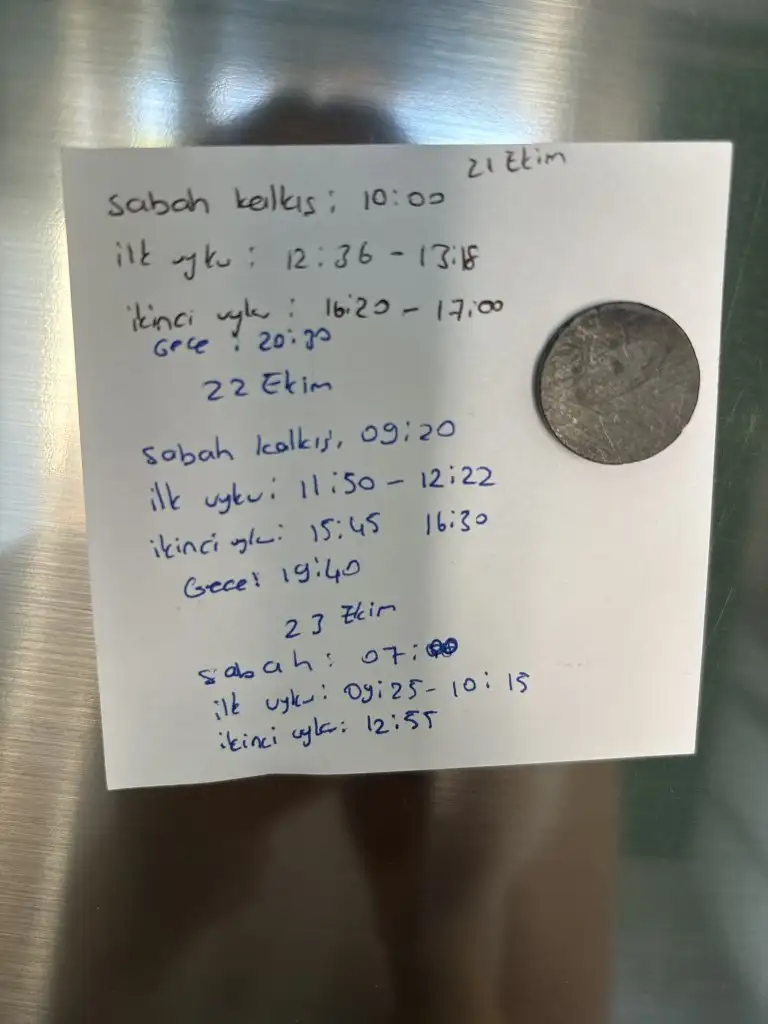 21 Ekim
Sabah kalkış: 10:00
ilk uyku: 12:36 - 13:18
ikinci uyku: 16:20 - 17:00
Gece: 20:30
22 Ekim
Sabah kalkış, 09:20
ilk uyku: 11:50 - 12:22
ikinci uyku: 15:45 16:30
Gece: 19:40
23 Ekim
sabah: 07:
ilk uyku: 09:25 - 10:15
ikinci uyku: 12:55